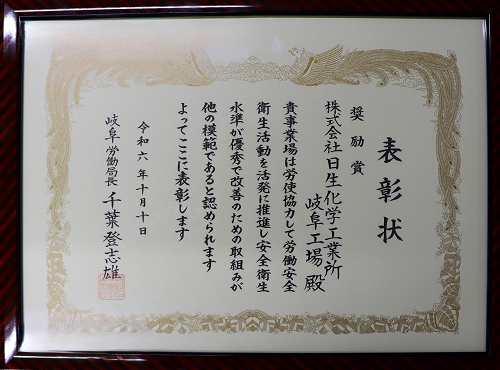 表彰状
奨励賞
株式会社日生化学工業所
岐阜工場 殿
貴事業場は労使協力して労働安全
衛生活動を活発に推進し安全衛生
水準が優秀で改善のための取組みが
他の模範であると認められます
よってここに表彰します
令和六年十月十日
岐阜労働局長 千葉登志雄